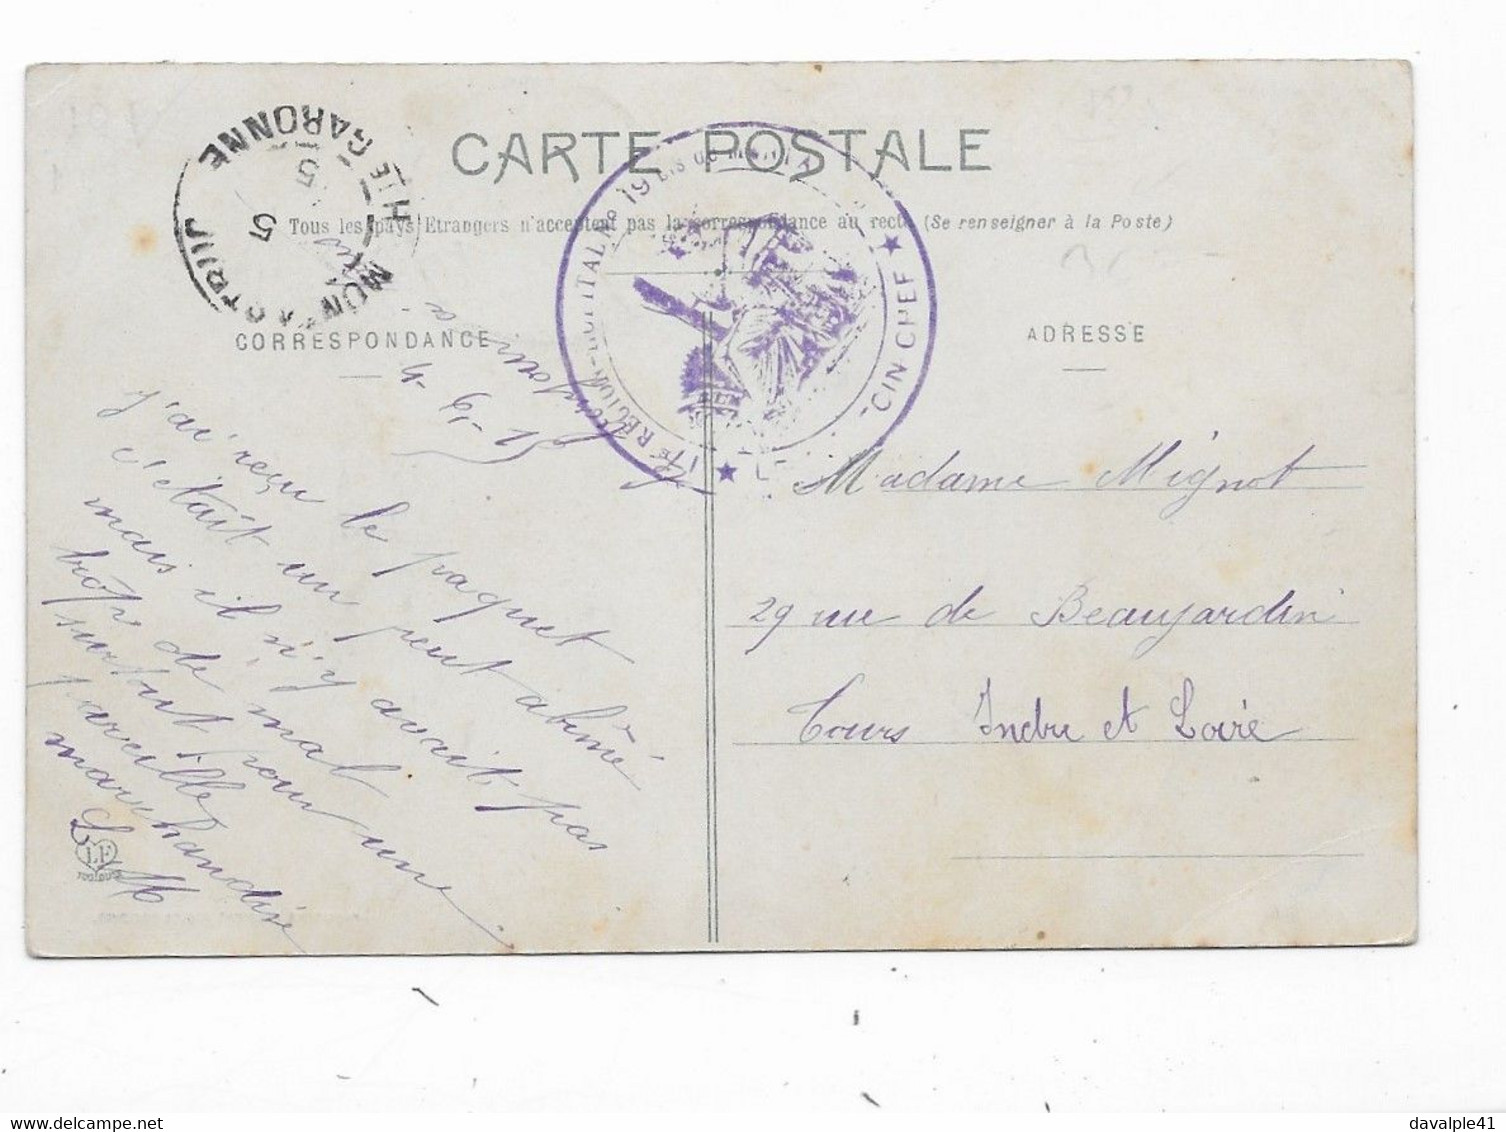 CARTE POSTALE
Tous les pays Etrangers n'acceptent pas la correspondance au recto (Se renseigner à la Poste)
CORRESPONDANCE
ADRESSE
MONTASTRUC
HTE GARONNE
5
5
RÉGION HOPITAL No 19 bis de
CIN CHEF
j'ai reçu le paquet
c'était un peut abîmé
mais il n'y avait pas
trop de mal
surtout pour une
pareille
marchandise
L M
LF
Madame Mignot
29 rue de Beaujardin
Tours Indre et Loire
www.delcampe.net
davalple41